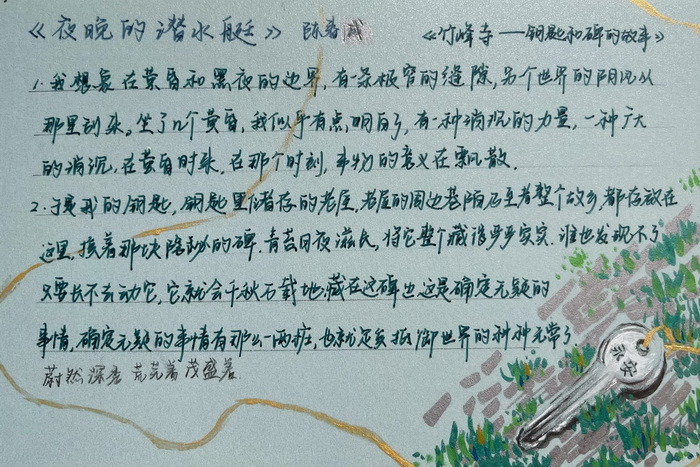 《夜晚的潜水艇》 陈春成 《竹峰寺——钥匙和碑的故事》
1.我想象在黄昏和黑夜的边界,有一条极窄的缝隙,另个世界的阴风从
那里刮来。坐了几个黄昏,我似乎有点明白了,有一种消沉的力量,一种广大
的消沉,在黄昏时来。在那个时刻,事物的意义在飘散。
2.于是我的钥匙,钥匙里储存的老屋,老屋的周边甚而至着整个故乡,都存放在
这里,挨着那块隐秘的碑。青苔日夜滋长,将它整个藏得严严实实。谁也发现不了
只要长不去动它,它就会千秋万载地藏在这碑也这是确定无疑的
事情,确定无疑的事情有那么一两桩,也就足矣抵御世界的种种无常了
蔚然深秀 荒芜着茂盛着
永安